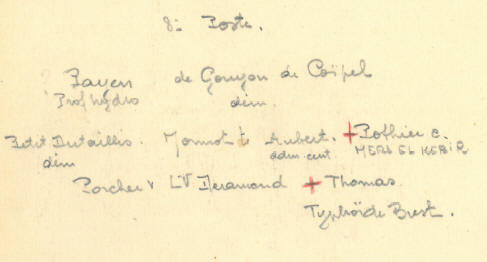 8e Poste.
Payen de Gouyon de Coïpel
Prof hydro dém.
Petit Dutaillis. Monnot Aubert. + Pothier c.
dém adm. cent. MERS EL KEBIR
Porcher LV Deramond + Thomas
Typhoïde Brest.